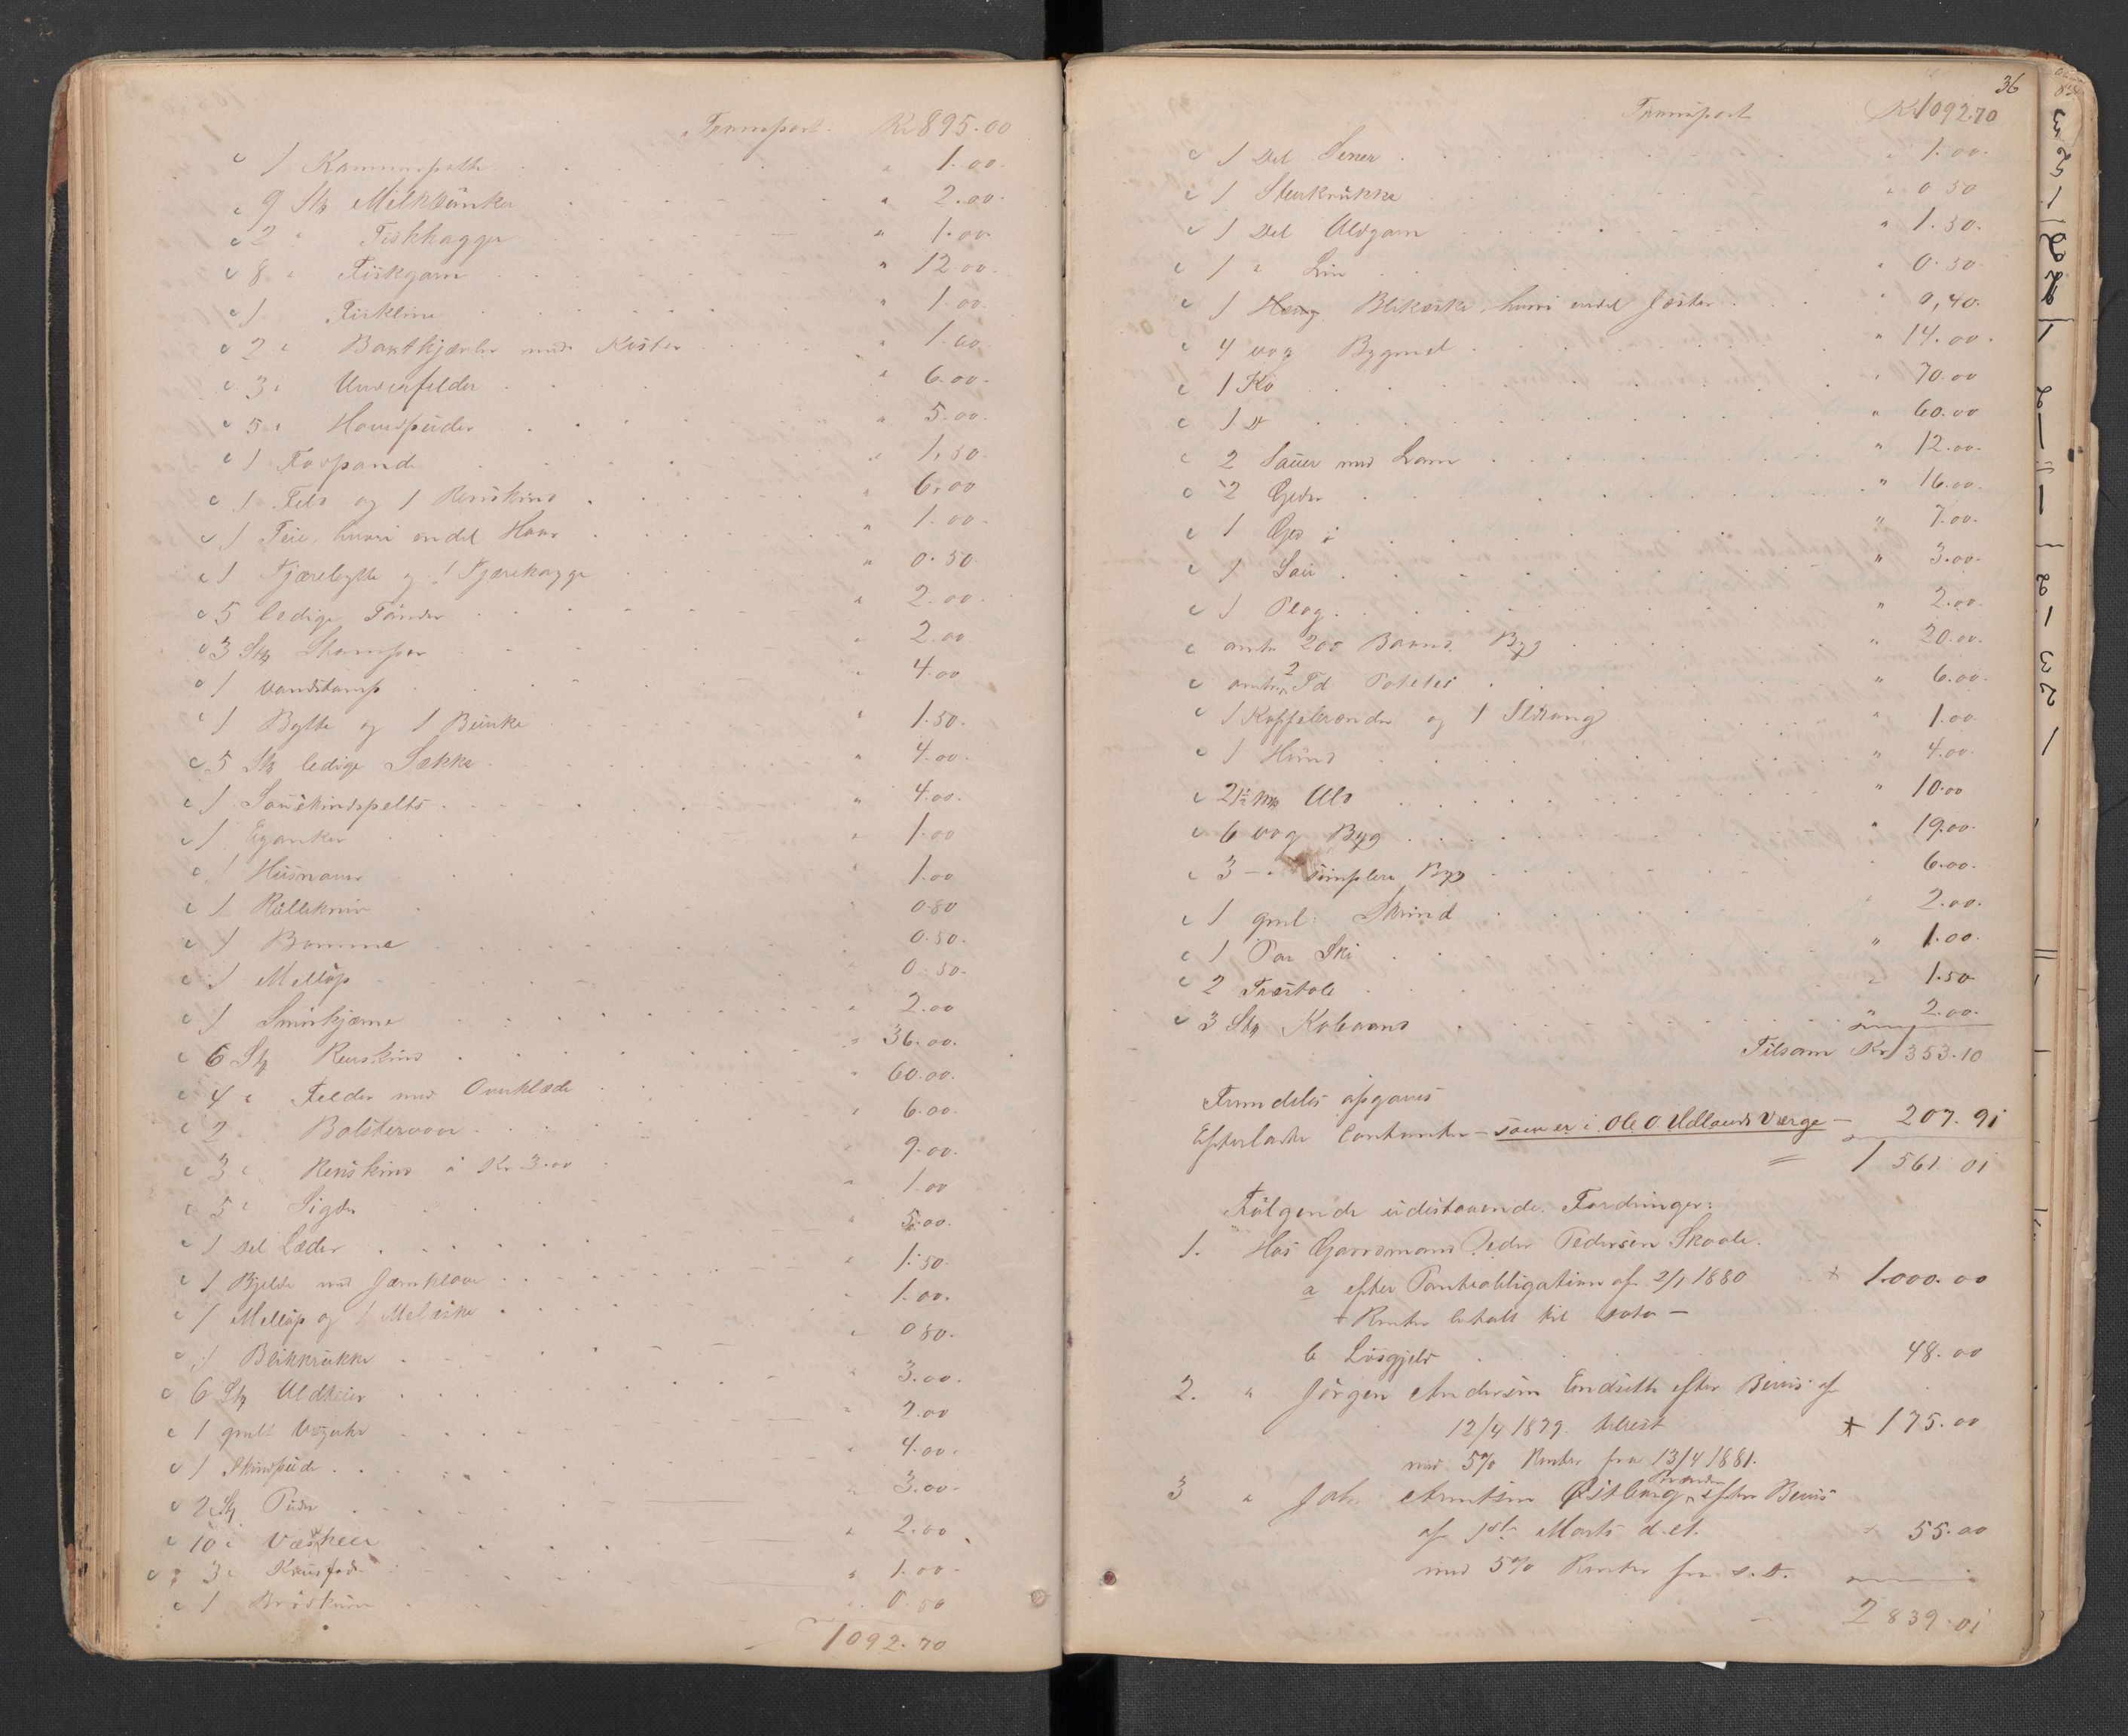 Transport Kr 895.00
1 1.00
9 Stk Melkbunker " 2.00
2 " Fiskkagger " 1.00
8 " Fiskgarn " 12.00
1 Fiskline " 1.00
2 " med Koster " 1.00
3 " Underfelder " 6.00
5 " Hovedpuder " 5.00
1 " 1,50
1 Feld og 1 Renskind " 6,00
1 Teie, hvori endel " 1.00
1 Tjærebytte og 1 Tjærekagge " 0.50
5 ledige Tønder " 2.00
3 Stk Stamper " 2.00
1 Vandstamp " 4.00
1 Bytte og 1 Bunke " 1.50
5 Stk ledige Sække " 4.00
1 Saueskindspelts " 4.00
1 " 1.00
1 Husnaver " 1.00
1 Rullekniv " 0.80
1 Bomme " 0.50
1 Melløp " 0.50
1 Smørkjærne " 2.00
6 Stk Renskind " 36.00
4 " Felder med Overklæde " 60.00
2 Bolstervaar " 6.00
3 " Renskind á Kr 3.00 " 9.00
5 " Sigder " 1.00
1 Del Læder " 5.00
1 Bjelde med Jernklave " 1.50
1 Melløp og 1 Melæske " 1.00
1 Blikkrukke " 0 80
6 Stk Uldteier " 3.00
1 gmlt " 2.00
1 Skindpude " 4.00
2 Stk Puder " 3.00
10 " " 2.00
3 " " 1.00
1 " 0.50
1092.70
36
Transport Kr 1092.70
1 Del Sener " 1.00
1 Stenkrukke " 0 50
1 Del Uldgarn " 1.50
1 " Lin " 0.50
1 Blikæske hvori endel " 0,40
4 vog Bygmel " 14.00
1 Ko " 70.00
1 D " 60.00
2 Sauer med Lam " 12.00
2 Geder " 16.00
1 Ged " 7.00
1 Sau " 3.00
1 Plog " 2.00
omtr 200 Baand Byg " 20.00
omtr 2 Td Poteter " 6.00
1 Kaffebrænder og 1 Ildtang " 1.00
1 Hund " 4.00
2 1/2 Uld " 10.00
6 vog Byg " 19.00
3 - " simplere Byg 6.00
1 gml: Skrind " 2.00
1 Par Ski " 1.00
2 Træstole " 1.50
3 Stk " 2.00
Tilsam Kr 1353.10
Fremdeles opgaves
Efterladte Contanter - som er i Ole O. Udlands Værge - 207.91
1 561 01
Følgende udestaaende Fordringer:
1. Hos Gaardmand Peder Pedersen Skaale.
a efter Panteobligation af 2/1 1880 + 1.000.00
Renter betalt til dato -
b Løsgjeld 48.00
2. " Jørgen Andersen Endseth efter Bevis af
12/4 1879 + 175.00
med 5% Renter fra 13/4 1881.
3 " Joh. Arntsen Østborg efter Bevis
af 1ste Marts d.A. 55.00
med 5% Renter fra s.D.
2 839.01